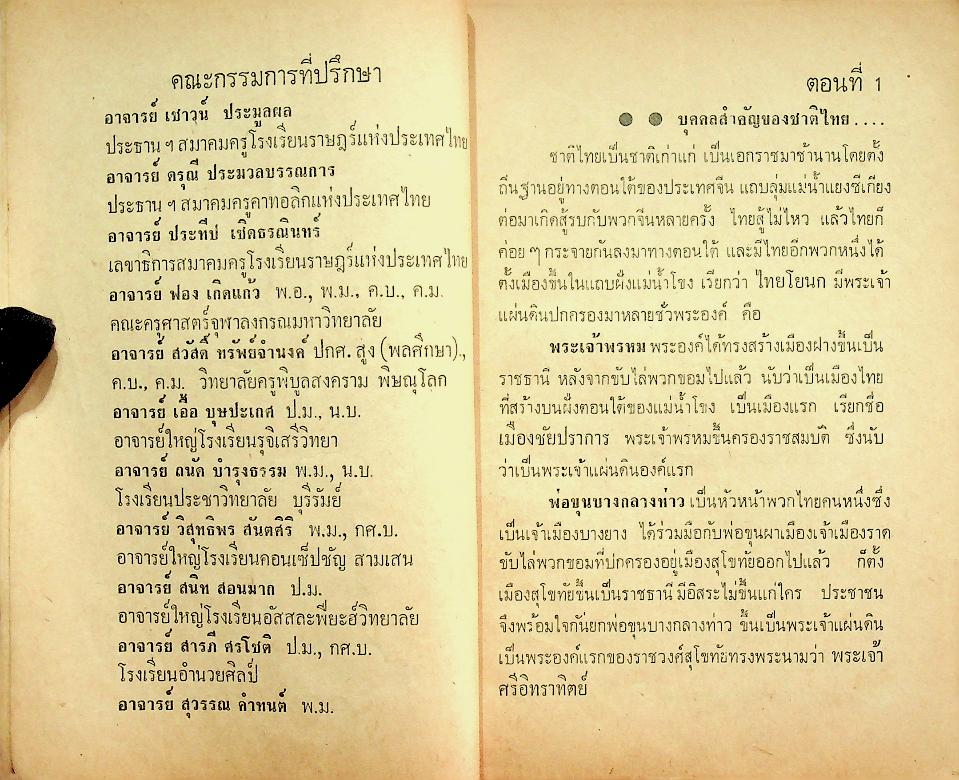 คณะกรรมการที่ปรึกษา
อาจารย์ เชาวน์ ประมูลผล
ประธาน ฯ สมาคมครูโรงเรียนราษฎร์แห่งประเทศไทย
อาจารย์ ดรุณี ประมวลบรรณการ
ประธาน ฯ สมาคมครูคาทอลิกแห่งประเทศไทย
อาจารย์ ประทีป เชิดธรณินทร์
เลขาธิการสมาคมครูโรงเรียนราษฎร์แห่งประเทศไทย
อาจารย์ ฟอง เกิดแก้ว พ.อ., พ.ม., ค.บ., ค.ม.
คณะครุศาสตร์จุฬาลงกรณมหาวิทยาลัย
อาจารย์ สวัสดิ์ ทรัพย์จำนงค์ ปกศ. สูง (พลศึกษา).,
ค.บ., ค.ม. วิทยาลัยครูพิบูลสงคราม พิษณุโลก
อาจารย์ เอื้อ บุษปะเกศ ป.ม., น.บ.
อาจารย์ใหญ่โรงเรียนรุจิเสรีวิทยา
อาจารย์ ถนัด บำรุงธรรม พ.ม., น.บ.
โรงเรียนประชาวิทยาลัย บุรีรัมย์
อาจารย์ วิสุทธิพร สันตศิริ พ.ม., กศ.บ.
อาจารย์ใหญ่โรงเรียนคอนเซ็ปชัญ สามเสน
อาจารย์ สนิท สอนมาก ป.ม.
อาจารย์ใหญ่โรงเรียนอัสสละฟียะฮ์วิทยาลัย
อาจารย์ สารภี ศรโชติ ป.ม., กศ.บ.
โรงเรียนอำนวยศิลป์
อาจารย์ สุวรรณ คำทนต์ พ.ม.
ตอนที่ 1
● ● บุคคลสำคัญของชาติไทย ....
ชาติไทยเป็นชาติเก่าแก่ เป็นเอกราชมาช้านานโดยตั้ง
ถิ่นฐานอยู่ทางตอนใต้ของประเทศจีน แถบลุ่มแม่น้ำแยงซีเกียง
ต่อมาเกิดสู้รบกับพวกจีนหลายครั้ง ไทยสู้ไม่ไหว แล้วไทยก็
ค่อย ๆ กระจายกันลงมาทางตอนใต้ และมีไทยอีกพวกหนึ่งได้
ตั้งเมืองขึ้นในแถบฝั่งแม่น้ำโขง เรียกว่า ไทยโยนก มีพระเจ้า
แผ่นดินปกครองมาหลายชั่วพระองค์ คือ
พระเจ้าพรหม พระองค์ได้ทรงสร้างเมืองฝางขึ้นเป็น
ราชธานี หลังจากขับไล่พวกขอมไปแล้ว นับว่าเป็นเมืองไทย
ที่สร้างบนฝั่งตอนใต้ของแม่น้ำโขง เป็นเมืองแรก เรียกชื่อ
เมืองชัยปราการ พระเจ้าพรหมขึ้นครองราชสมบัติ ซึ่งนับ
ว่าเป็นพระเจ้าแผ่นดินองค์แรก
พ่อขุนบางกลางท่าว เป็นหัวหน้าพวกไทยคนหนึ่งซึ่ง
เป็นเจ้าเมืองบางยาง ได้ร่วมมือกับพ่อขุนผาเมืองเจ้าเมืองราด
ขับไล่พวกขอมที่ปกครองอยู่เมืองสุโขทัยออกไปแล้ว ก็ตั้ง
เมืองสุโขทัยขึ้นเป็นราชธานี มีอิสระไม่ขึ้นแก่ใคร ประชาชน
จึงพร้อมใจกันยกพ่อขุนบางกลางทาว ขึ้นเป็นพระเจ้าแผ่นดิน
เป็นพระองค์แรกของราชวงศ์สุโขทัยทรงพระนามว่า พระเจ้า
ศรีอิทราทิตย์